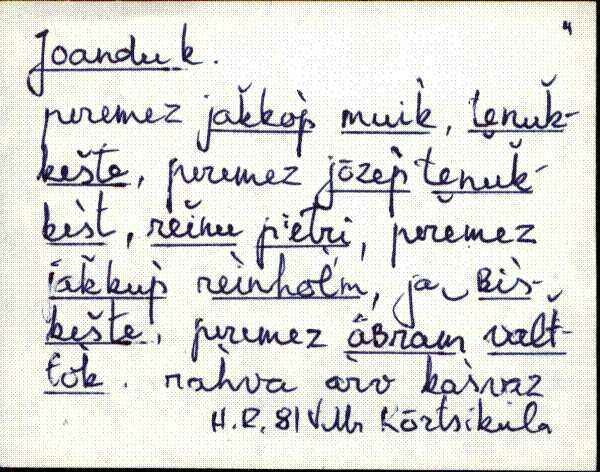 Joanduk.
peremez jak̆kop̀ muik̀, tẹnuk̆-
kešte, peremez jōzep̀ tẹnuk̆-
kist, rei̮nu pietri, peremez
jak̆kup̀ reinhol'm, ja Bis-
kešte, peremez ābram valt̆-
tok̀. rahva arv kasvaz
H.R. 81 V.Mr Kōrtsiküla